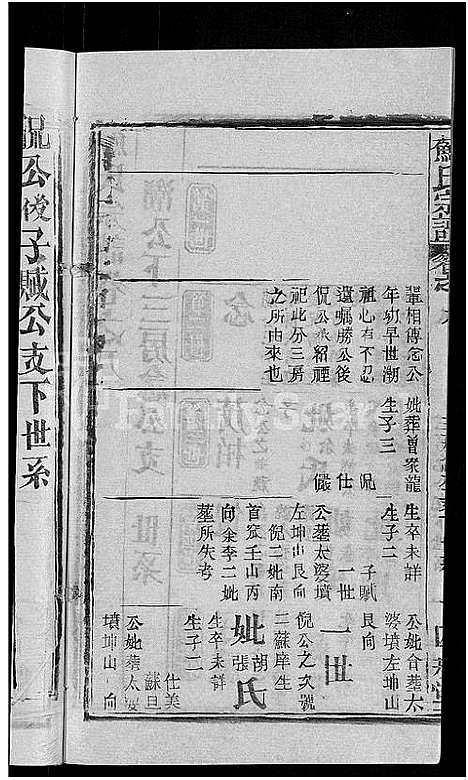 蘇氏宗譜
輩相傳念公
年幼早世潮
祖心有不忍
遺囑勝公後
侃公承紹禋
祀此分三房
之所由來也
妣葬曾家龍
生子三
侃
仕
儼
生卒未詳
生子二
子賦
一世
公墓太婆墳
左坤山艮向
倪二妣南
首亥壬山丙
向余李二妣
墓所失考
公妣合葬太
婆墳左坤山
艮向
一世
倪公之次號
二蘇庠生
妣胡張氏
生卒未詳
生子二
仕美
蘇旦
公妣葬太婆
墳坤山艮向
侃公後子賦公支下世系